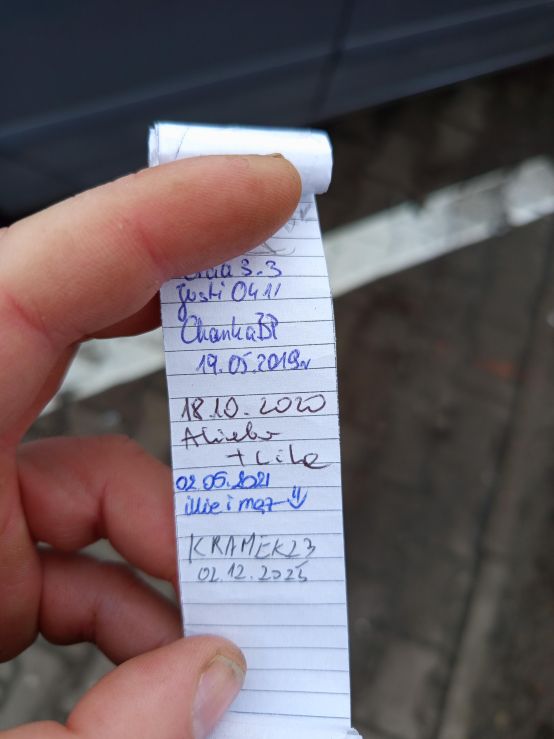 3.3
Justi 04.11
ChankaBP
19.05.2019r
18.10.2020
+ Lila
02.05.2021
illie i mąż
KRAMEK23
02.12.2025